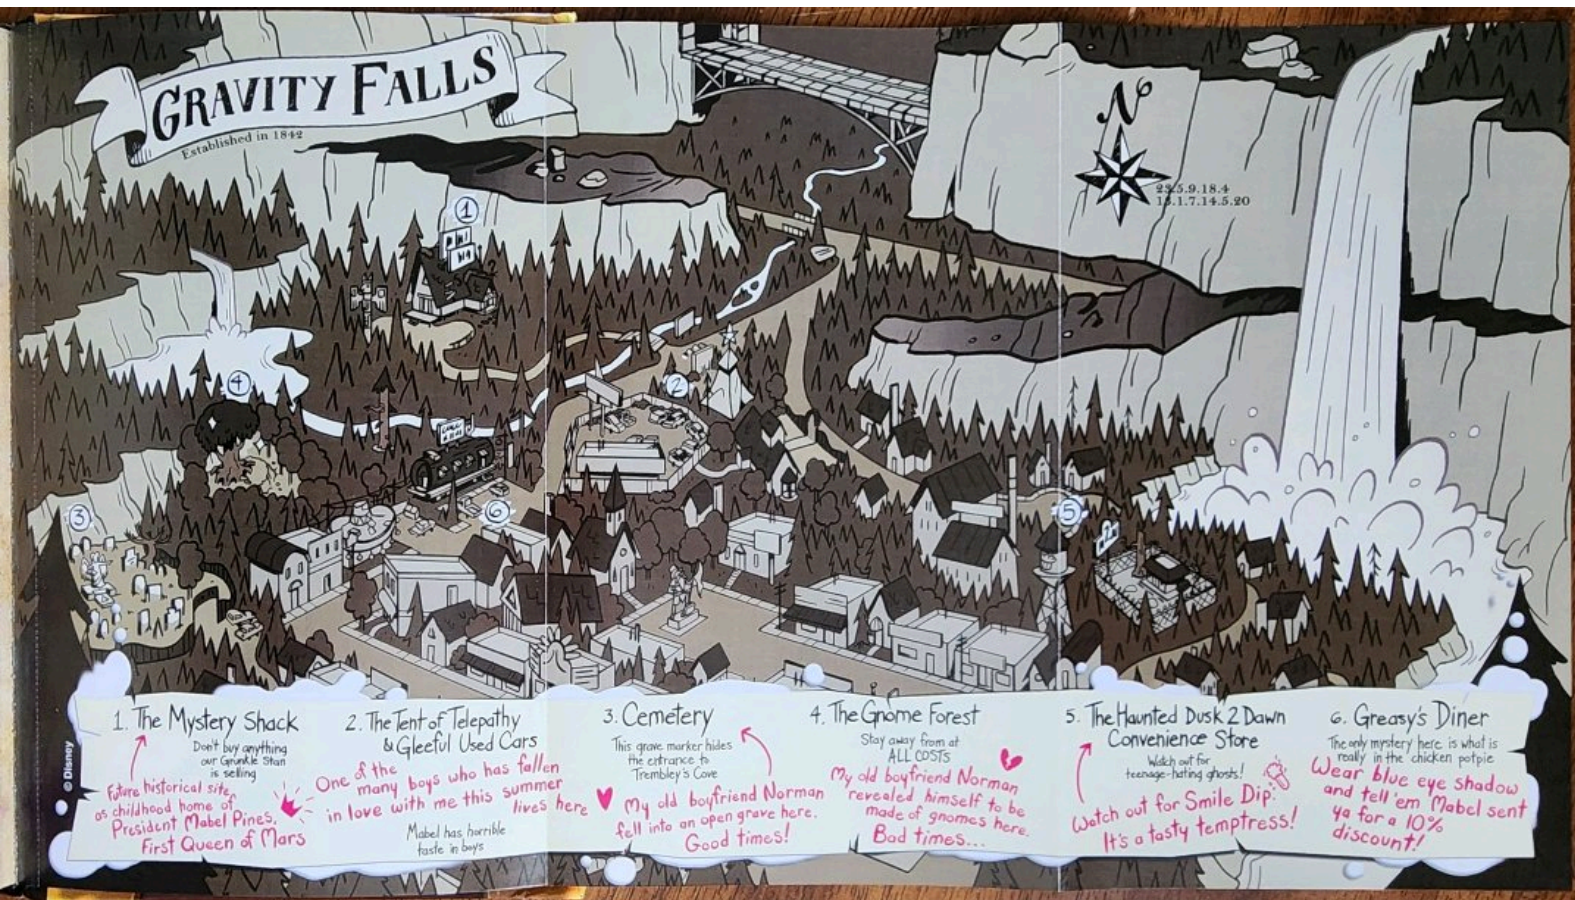 GRAVITY FALLS
Established in 1842
N
23.5.9.18.4
13.1.7.14.5.20
1
2
3
4
5
6
1. The Mystery Shack
Don't buy anything
our Grunkle Stan
is selling
Future historical site
as childhood home of
President Mabel Pines,
First Queen of Mars
2. The Tent of Telepathy
& Gleeful Used Cars
One of the
many boys who has fallen
in love with me this summer
lives here
Mabel has horrible
taste in boys
3. Cemetery
This grave marker hides
the entrance to
Trembley's Cove
My old boyfriend Norman
fell into an open grave here.
Good times!
4. The Gnome Forest
Stay away from at
ALL COSTS
My old boyfriend Norman
revealed himself to be
made of gnomes here.
Bad times...
5. The Haunted Dusk 2 Dawn
Convenience Store
Watch out for
teenage-hating ghosts!
Watch out for Smile Dip.
It's a tasty temptress!
6. Greasy's Diner
The only mystery here is what is
really in the chicken potpie
Wear blue eye shadow
and tell 'em Mabel sent
ya for a 10%
discount!
© Disney